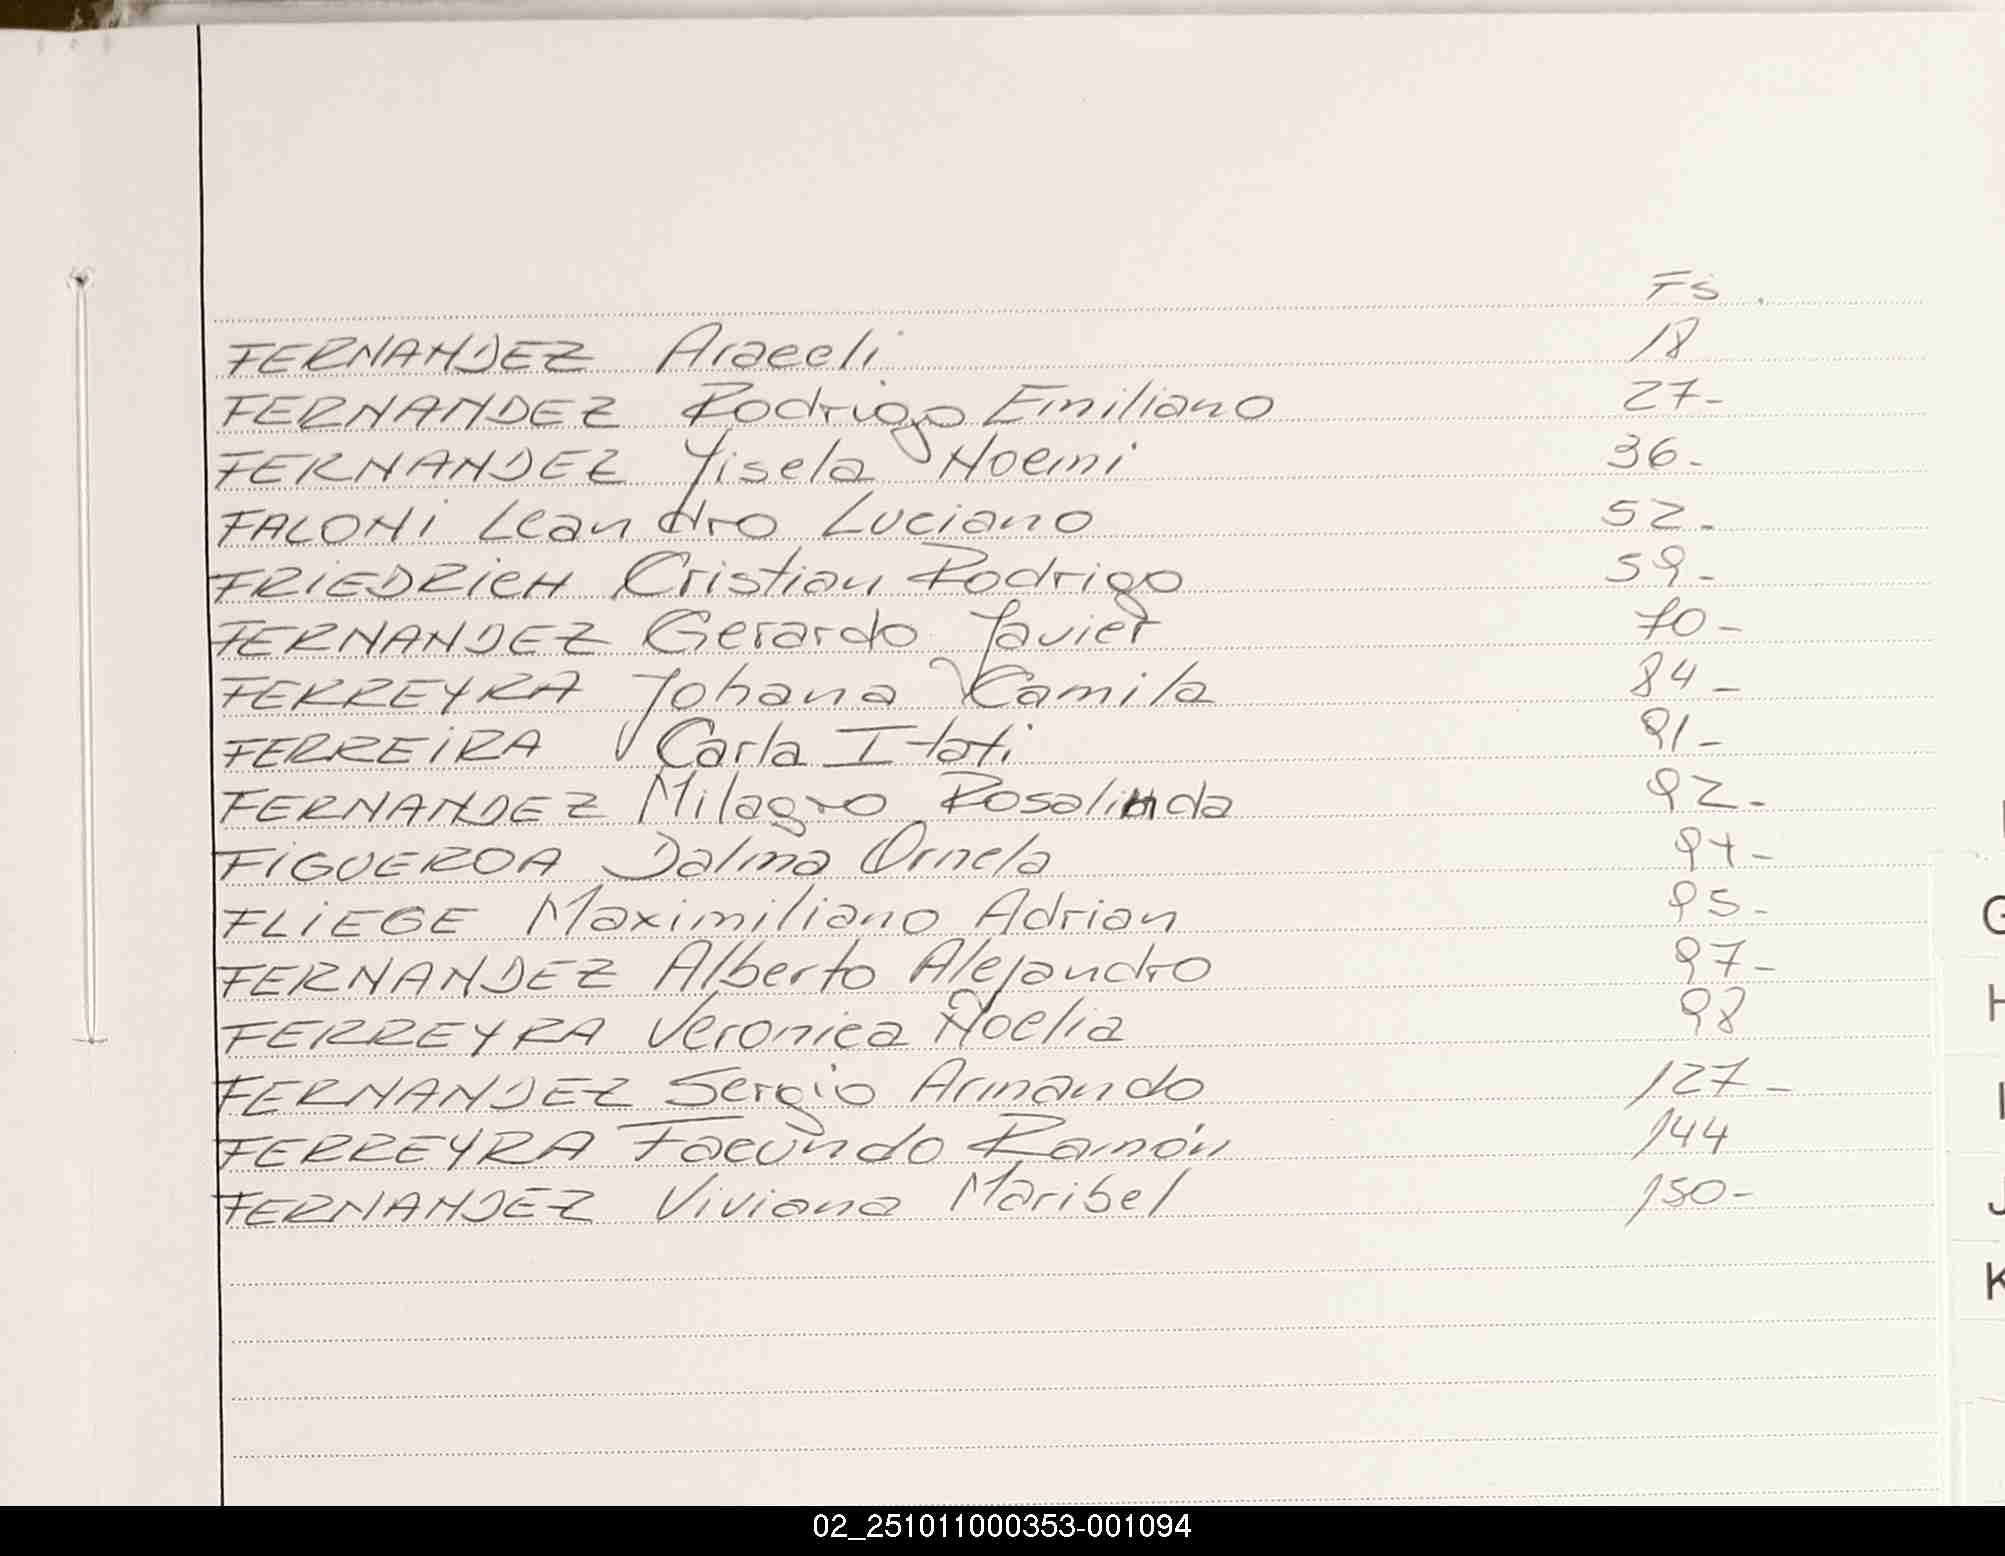 Fs.
FERNANDEZ Araceli 18
FERNANDEZ Rodrigo Emiliano 27-
FERNANDEZ Yisela Noemi 36-
FALONI Leandro Luciano 52-
FRiEDRicH Cristian Rodrigo 59-
FERNANDEZ Gerardo Javier 70-
FERREYRA Johana Camila 84-
FERREiRA Carla Itati 91-
FERNANDEZ Milagro Rosalinda 92-
FiGUEROA Dalma Ornela 94-
FLiEGE Maximiliano Adrian 95-
FERNANDEZ Alberto Alejandro 97-
FERREYRA Veronica Noelia 98
FERNANDEZ Sergio Armando 127-
FERREYRA Facundo Ramón 144
FERNANDEZ Viviana Maribel 150-
G
H
I
J
K
02_251011000353-001094